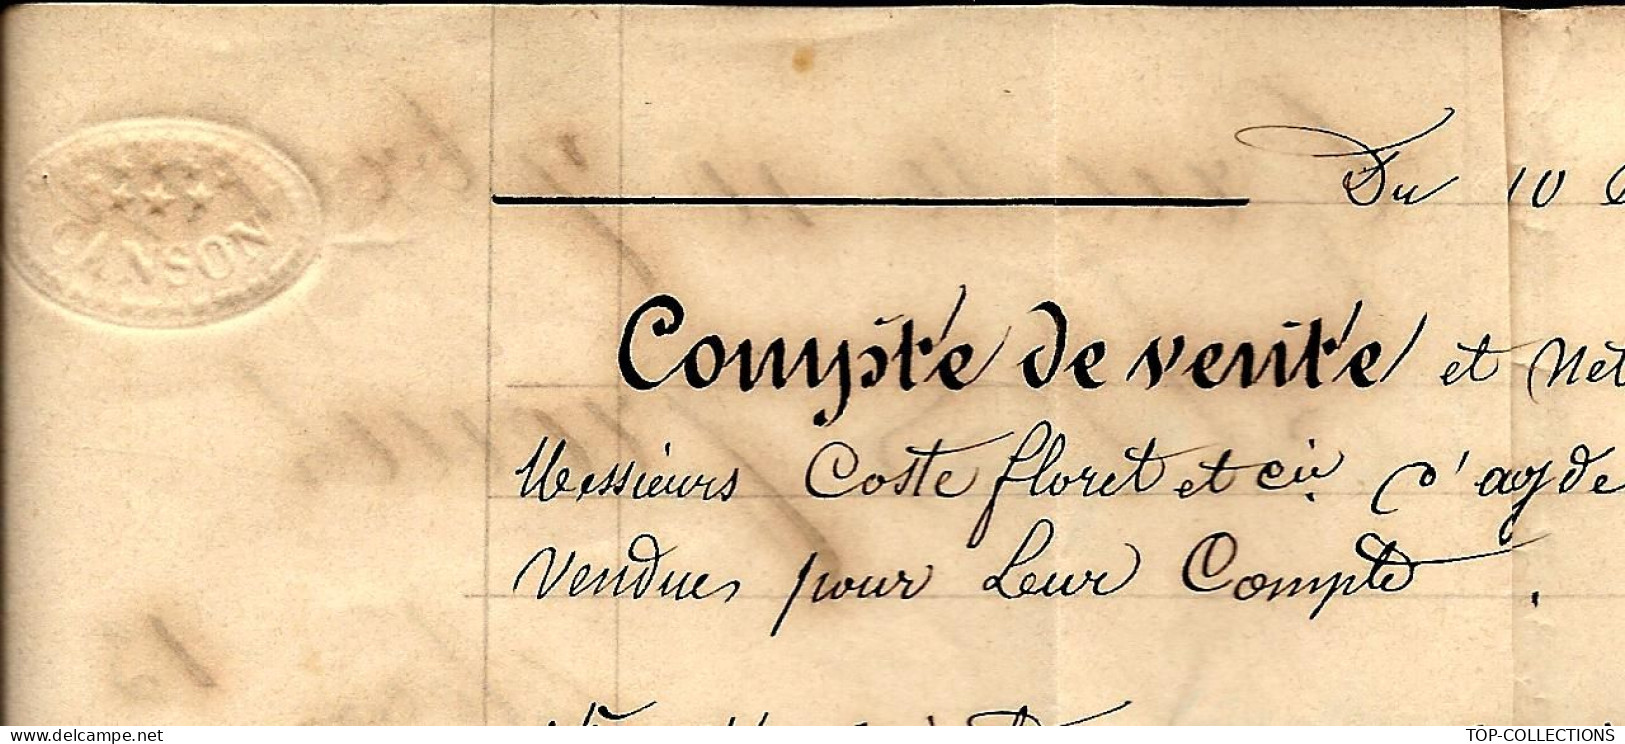 CANSON
Du 10
Compte de vente et Net
Messieurs Coste floret et cie d'agde
Vendues pour Leur Compte
delcampe.net
TOP-COLLECTIONS